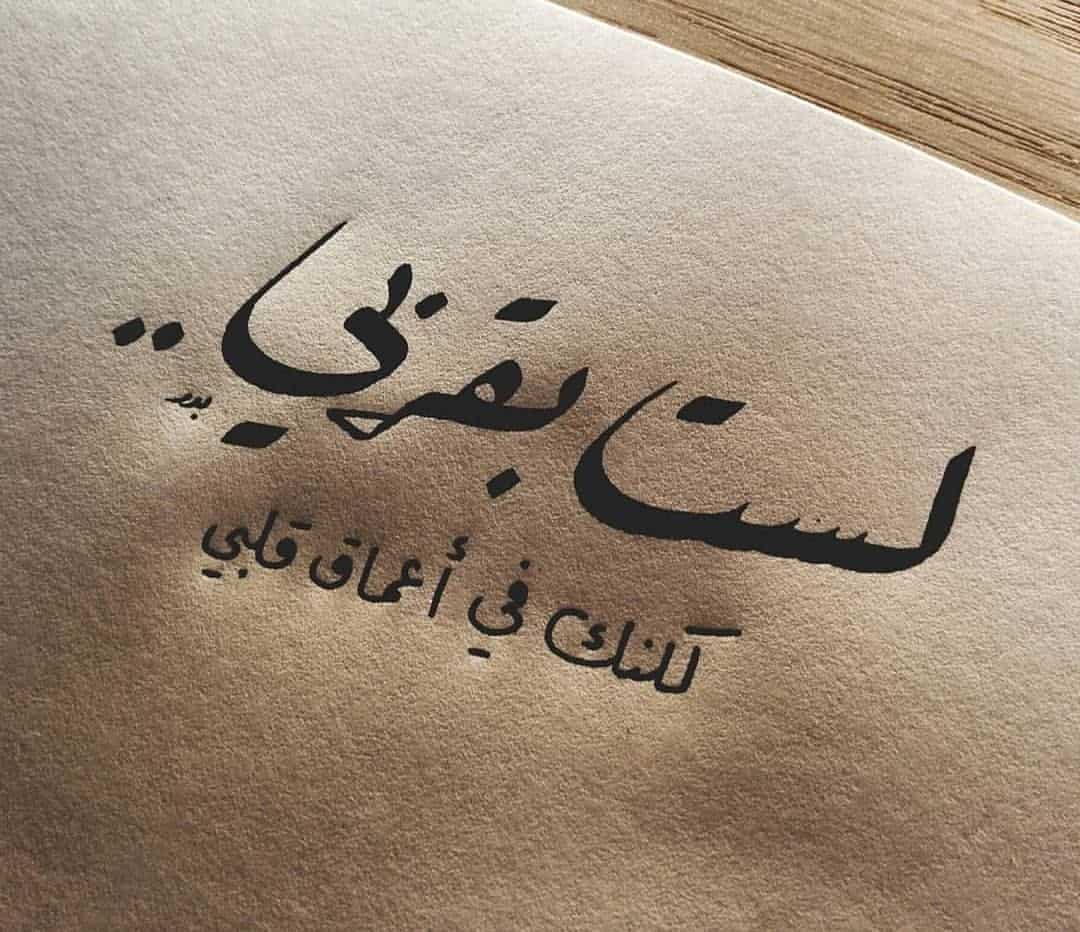 لست بقربي ..
بدر
لكنك في أعماق قلبي